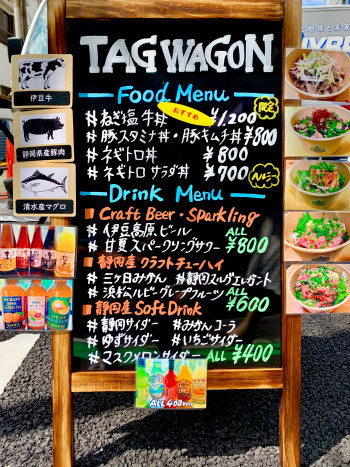 TAG WAGON
Food Menu
おすすめ
#ねぎ塩牛丼 ¥1,200 限定
#豚スタミナ丼・豚キムチ丼 ¥800
#ネギトロ丼 ¥800
#ネギトロサラダ丼 ¥700 ヘルシー
Drink Menu
Craft Beer・Sparkling
#伊豆高原ビール ALL
#甘夏スパークリングサワー ¥800
静岡産クラフトチューハイ
#三ヶ日みかん #静岡ミルクエレガント
#浜松ルビーグレープフルーツ ALL ¥600
静岡産 Soft Drink
#静岡サイダー #みかんコーラ
#ゆずサイダー #いちごサイダー
#マスクメロンサイダー ALL ¥400
ALL 400
伊豆牛
静岡県産豚肉
清水産マグロ